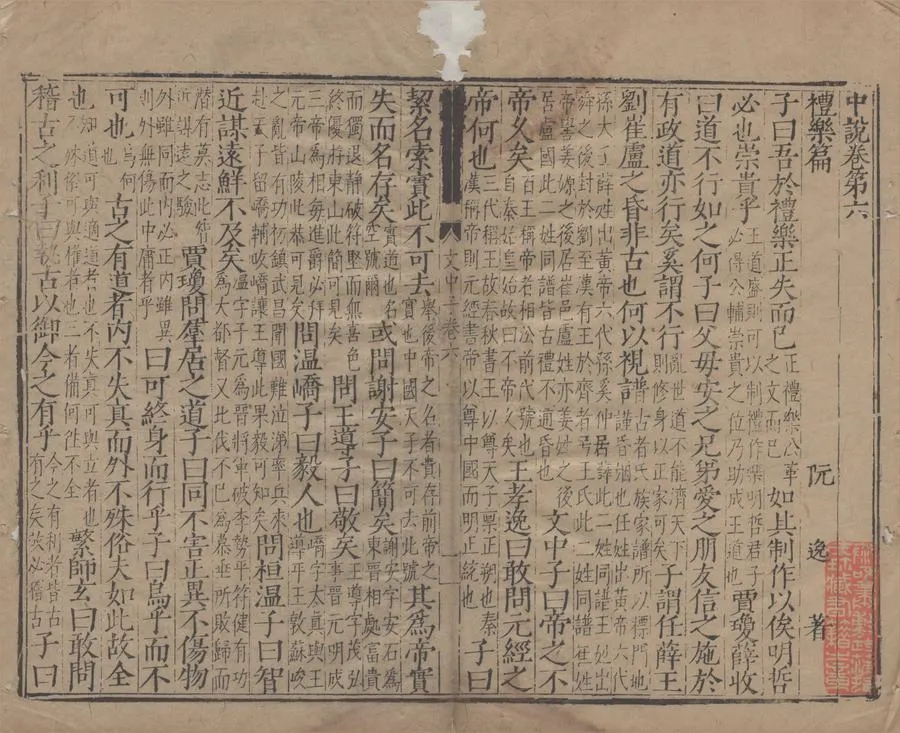 中說卷第六
禮樂篇 阮逸著
子曰吾於禮樂正失而已正禮樂公革之文而已如其制作以俟明哲
必也崇貴乎王道盛則可以制禮作樂明哲君子必得公輔崇貴之位乃助成王道也賈瓊薛收
曰道不行如之何子曰父母安之兄弟愛之朋友信之施於
有政道亦行矣奚謂不行亂世道不能濟天下則修身以正家可矣子謂任薛王
劉崔盧之昏非古也何以視譜古者氏族家譜所以標門地謹昏姻也任姓出黃帝六代
孫大壬薛姓出黃帝六代孫奚仲居薛此二姓同譜王姓出舜之後封於劉至漢有王於齊者号王氏此二姓同譜崔姓
帝嚳姜嫄之後居崔邑盧姓亦姜姓之後居盧國此二姓同譜皆古禮不通昏也文中子曰帝之不
帝久矣自秦始皇始故曰不帝久矣百王稱帝者相公前代號也王孝逸曰敢問元經之
帝何也三代稱王故春秋書王以尊天子稟正朔也秦漢稱帝則元經書帝以尊中國而明正統也子曰
文中子卷六
絜名索實此不可去舉後帝之名者貴存前此帝之實也中國天子不可去此號其為帝實
失而名存矣實道也名空號爾或問謝安子曰簡矣謝安字安石為東晉相處富貴
而獨退靜破符堅而無喜色終優游東山此簡可見矣問王導子曰敬矣王導字茂弘事晉元明成
三帝為相每進爵必拜元帝山陵此恭可見矣問温嶠子曰毅人也嶠字太真與王導平王敦蘇峻
之亂皆有功初鎮武昌聞國難泣涕率兵來赴云天子留嶠輔政嶠讓王導此果毅可知矣問桓温子曰智
近謀遠鮮不及矣溫字子元為晉將軍破李勢平符健有功為大都督又北伐不已為慕垂所敗歸而
潛有莫志此智近謀遠之驗賈瓊問羣居之道子曰同不害正異不傷物
外雖同而內必正內雖異則外無傷此中庸者乎曰可終身而行乎子曰烏乎而不
可也烏何也古之有道者內不失真而外不殊俗夫如此故全
也知道可與適道者也不失真可與立者也不殊俗可與權者也三者備何往不全繁師玄曰敢問
稽古之利子曰執古以御今之有乎今之有利者皆古有之矣故必稽古子曰